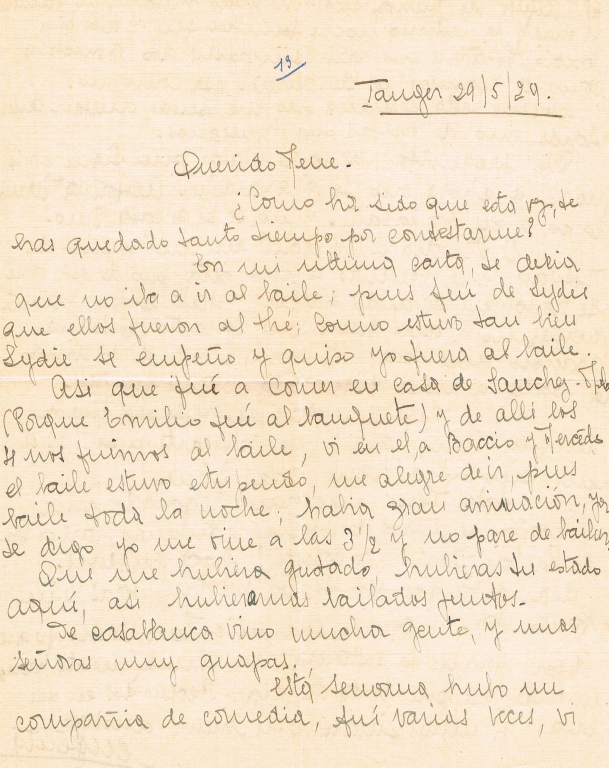 19
Tanger 29/5/29.
Querido Mene.
¿Como ha sido que esta vez, te
has quedado tanto tiempo por contestarme?
En mi ultima carta, te decia
que no iba a ir al baile; pues fué de Lydie
que ellos fueron al thé; Como estuvo tan bien
Lydie se empeño y quiso yo fuera al baile.
Asi que fué a comer en casa de Sanchez-
(Porque Emilio fué al banquete) y de alli los
4 nos fuimos al baile, vi en el, a Baccio y Mercedes
el baile estuvo estupendo, me alegre de ir, pues
baile toda la noche; habia gran animación, ya
te digo yo me vine a las 3 ½ y no pare de bailar,
Que me hubiera gustado, hubieras tu estado
aquí, asi hubieramos bailados juntos.
De casablanca vino mucha gente, y unas
señoras muy guapas.
Está semana hubo un
compañia de comedia, fuí varias veces, vi